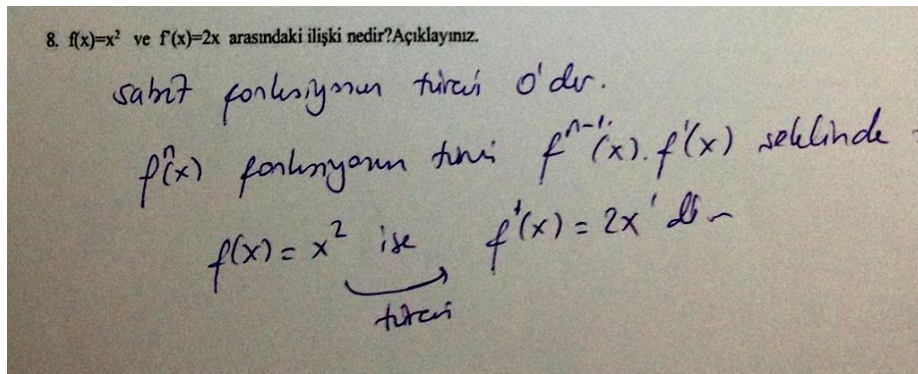 8. f(x)=x² ve f'(x)=2x arasındaki ilişki nedir?Açıklayınız.
sabit fonksiyonun türevi 0'dır.
fⁿ(x) fonksiyonun türevi fⁿ⁻¹(x). f'(x) şeklinde
f(x) = x² ise f'(x) = 2x' dir
türevi